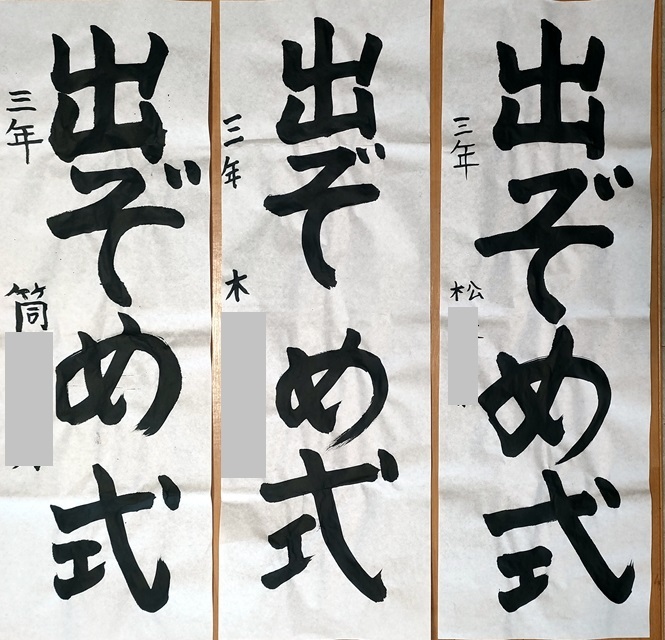 出ぞめ式
三年 筒
出ぞめ式
三年 木
出ぞめ式
三年 松